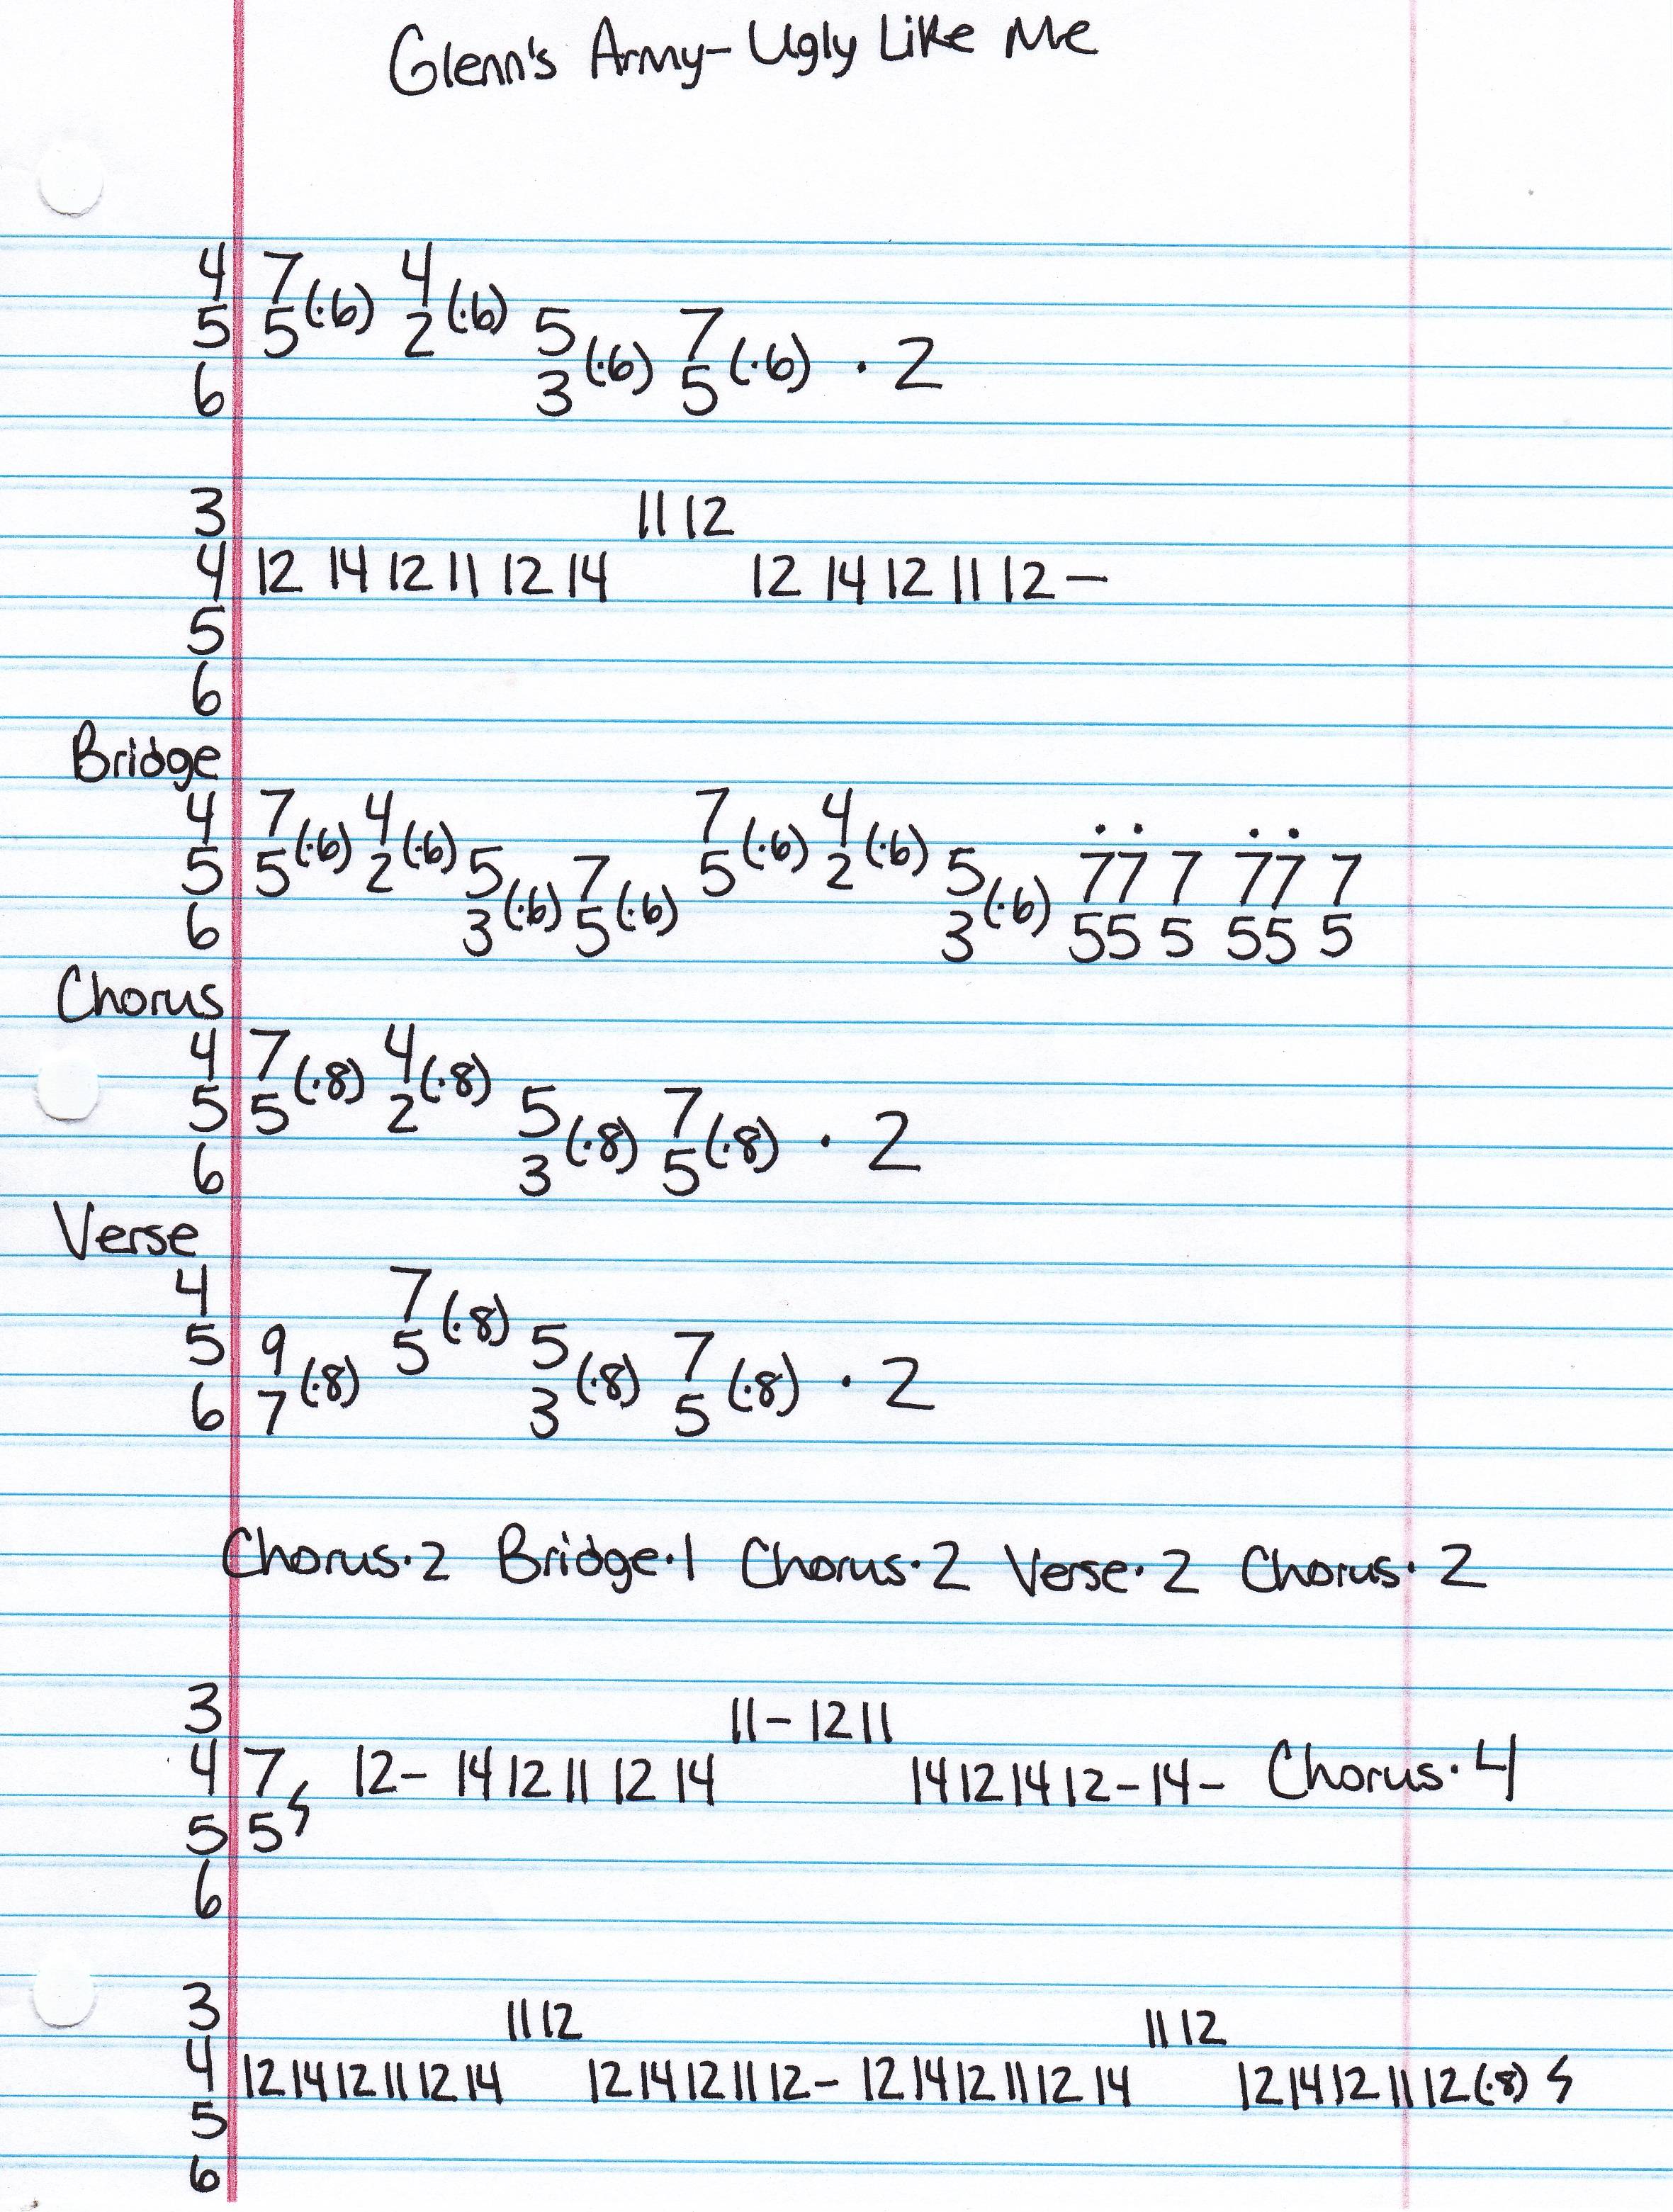 Glenn's Army- Ugly Like Me
4 7 4
5 5(·6) 2(·6) 5 7
6 3(·6) 5(·6) · 2
3 11 12
4 12 14 12 11 12 14 12 14 12 11 12 —
5
6
Bridge
4 7 4 7 4
5 5(·6) 2(·6) 5 7 5(·6) 2(·6) 5 7̇7̇ 7 7̇7̇ 7
6 3(·6) 5(·6) 3(·6) 55 5 55 5
Chorus
4 7(·8) 4(·8)
5 5 2 5 7
6 3(·8) 5(·8) · 2
Verse
4 7
5 9 5(·8) 5 7
6 7(·8) 3(·8) 5(·8) · 2
Chorus·2 Bridge·1 Chorus·2 Verse·2 Chorus·2
3 11- 12 11
4 7 12- 14 12 11 12 14 14 12 14 12-14- Chorus·4
5 5
6
3 11 12 11 12
4 12 14 12 11 12 14 12 14 12 11 12- 12 14 12 11 12 14 12 14 12 11 12(·8)
5
6